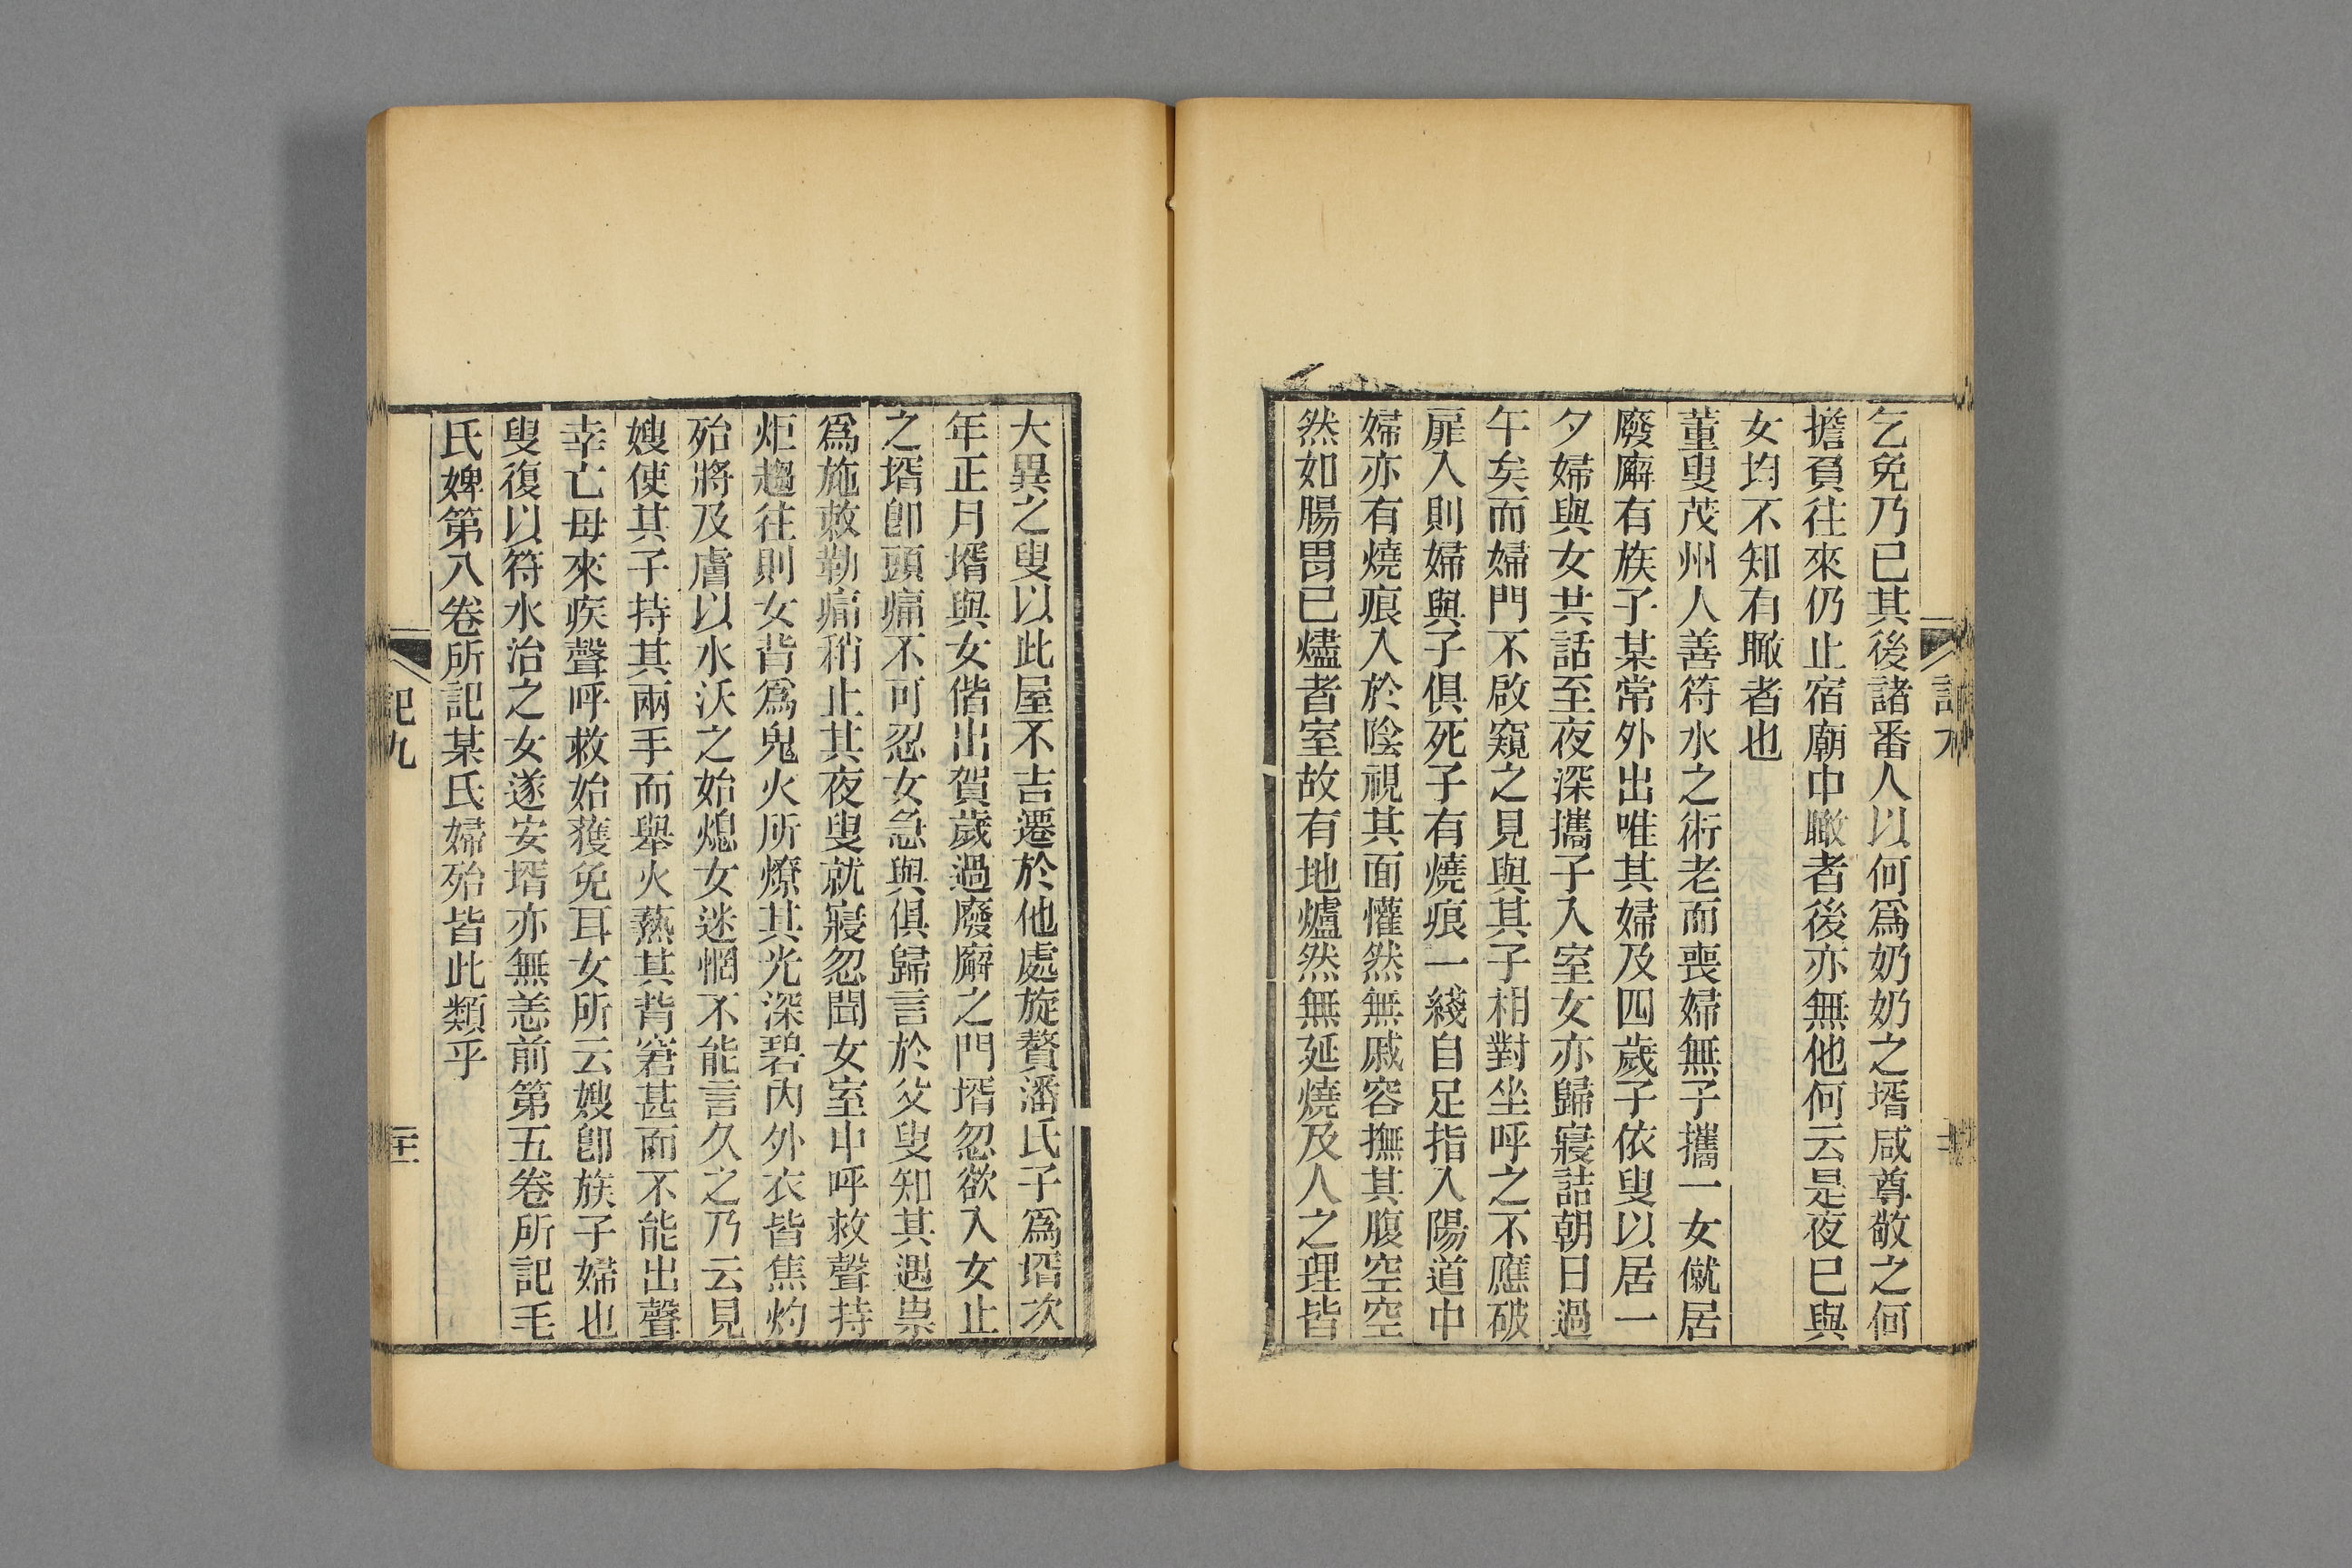 乞免乃已其後諸番人以何爲奶奶之壻咸尊敬之何
擔負往來仍止宿廟中瞰者後亦無他何云是夜已與
女均不知有瞰者也
董叟茂州人善符水之術老而喪婦無子攜一女僦居
廢廨有族子某常外出唯其婦及四歲子依叟以居一
夕婦與女共話至夜深攜子入室女亦歸寢詰朝日過
午矣而婦門不啟窺之見與其子相對坐呼之不應破
扉入則婦與子俱死子有燒痕一綫自足指入陽道中
婦亦有燒痕入於陰視其面懽然無戚容撫其腹空空
然如腸胃已燼者室故有地爐然無延燒及人之理皆
大異之叟以此屋不吉遷於他處旋贅潘氏子爲壻次
年正月壻與女偕出賀歲過廢廨之門壻忽欲入女止
之壻卽頭痛不可忍女急與俱歸言於父叟知其遇祟
爲施敕勒痛稍止其夜叟就寢忽聞女室中呼救聲持
炬趨往則女背爲鬼火所燎其光深碧內外衣皆焦灼
殆將及膚以水沃之始熄女迷惘不能言久之乃云見
嫂使其子持其兩手而舉火爇其背窘甚而不能出聲
幸亡母來疾聲呼救始獲免耳女所云嫂卽族子婦也
叟復以符水治之女遂安壻亦無恙前第五卷所記毛
氏婢第八卷所記某氏婦殆皆此類乎
記九